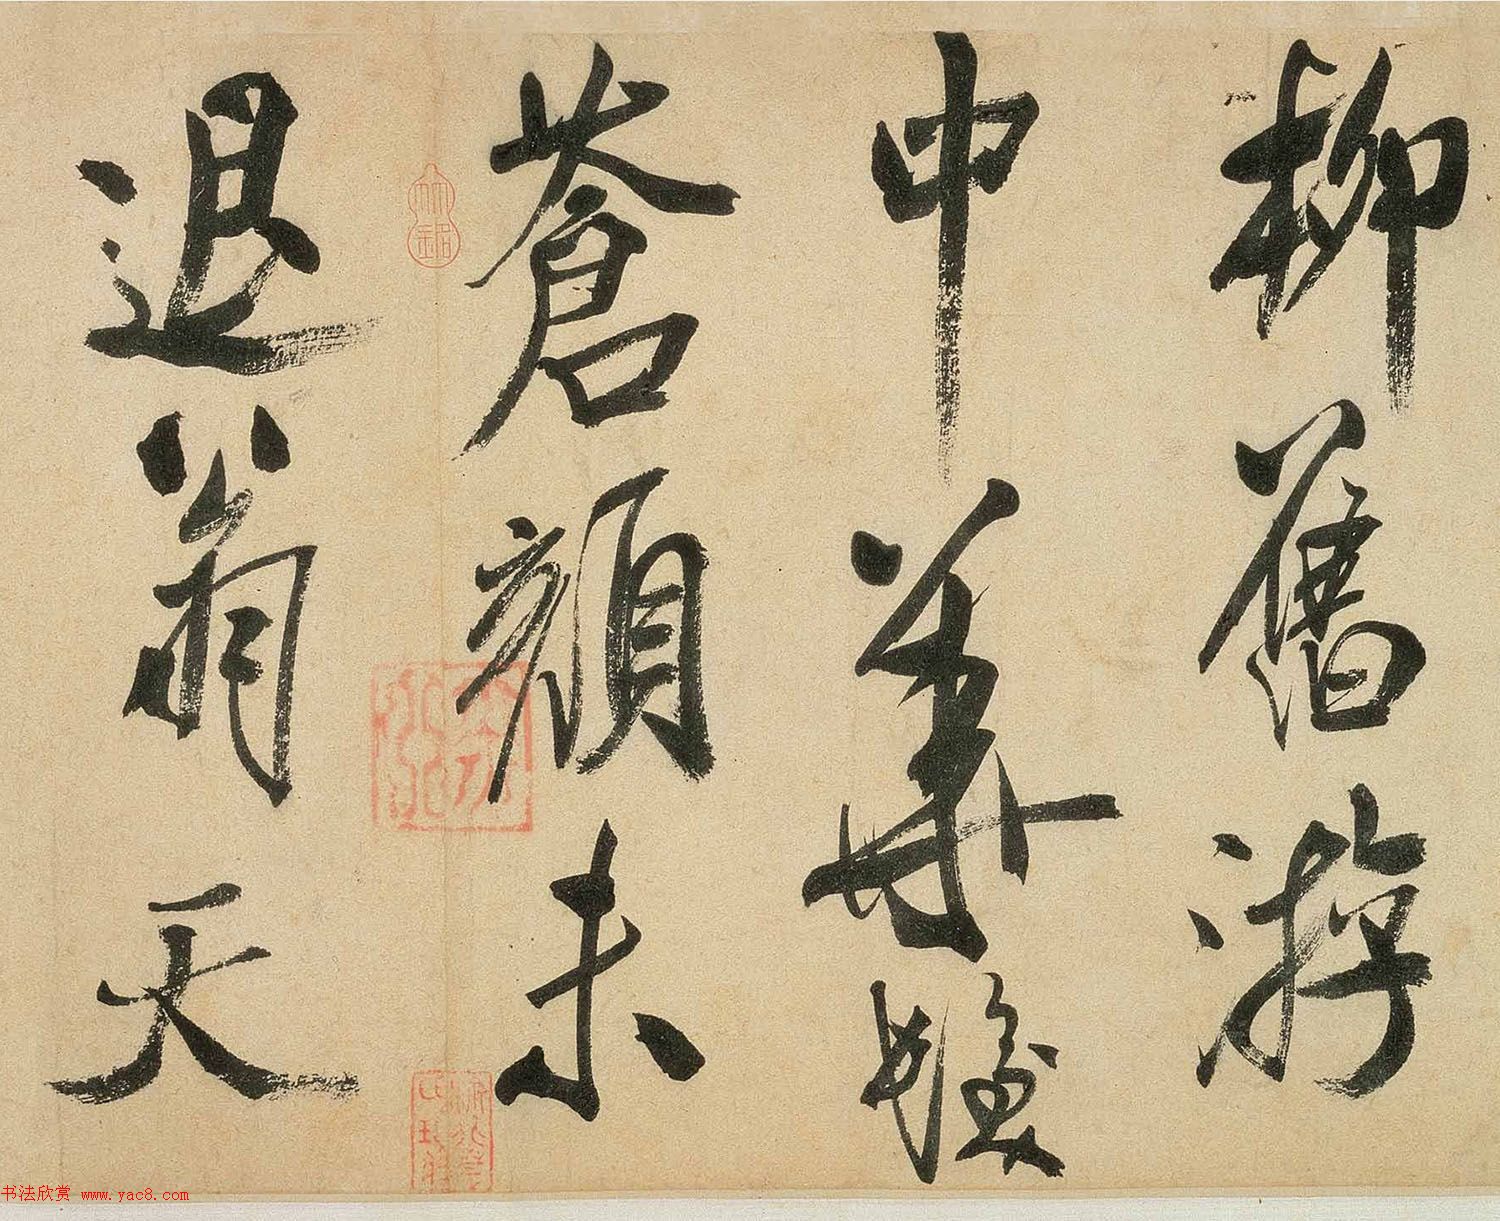 柳舊游
中華髮
蒼顏未
退翁天
书法欣赏 www.yac8.com